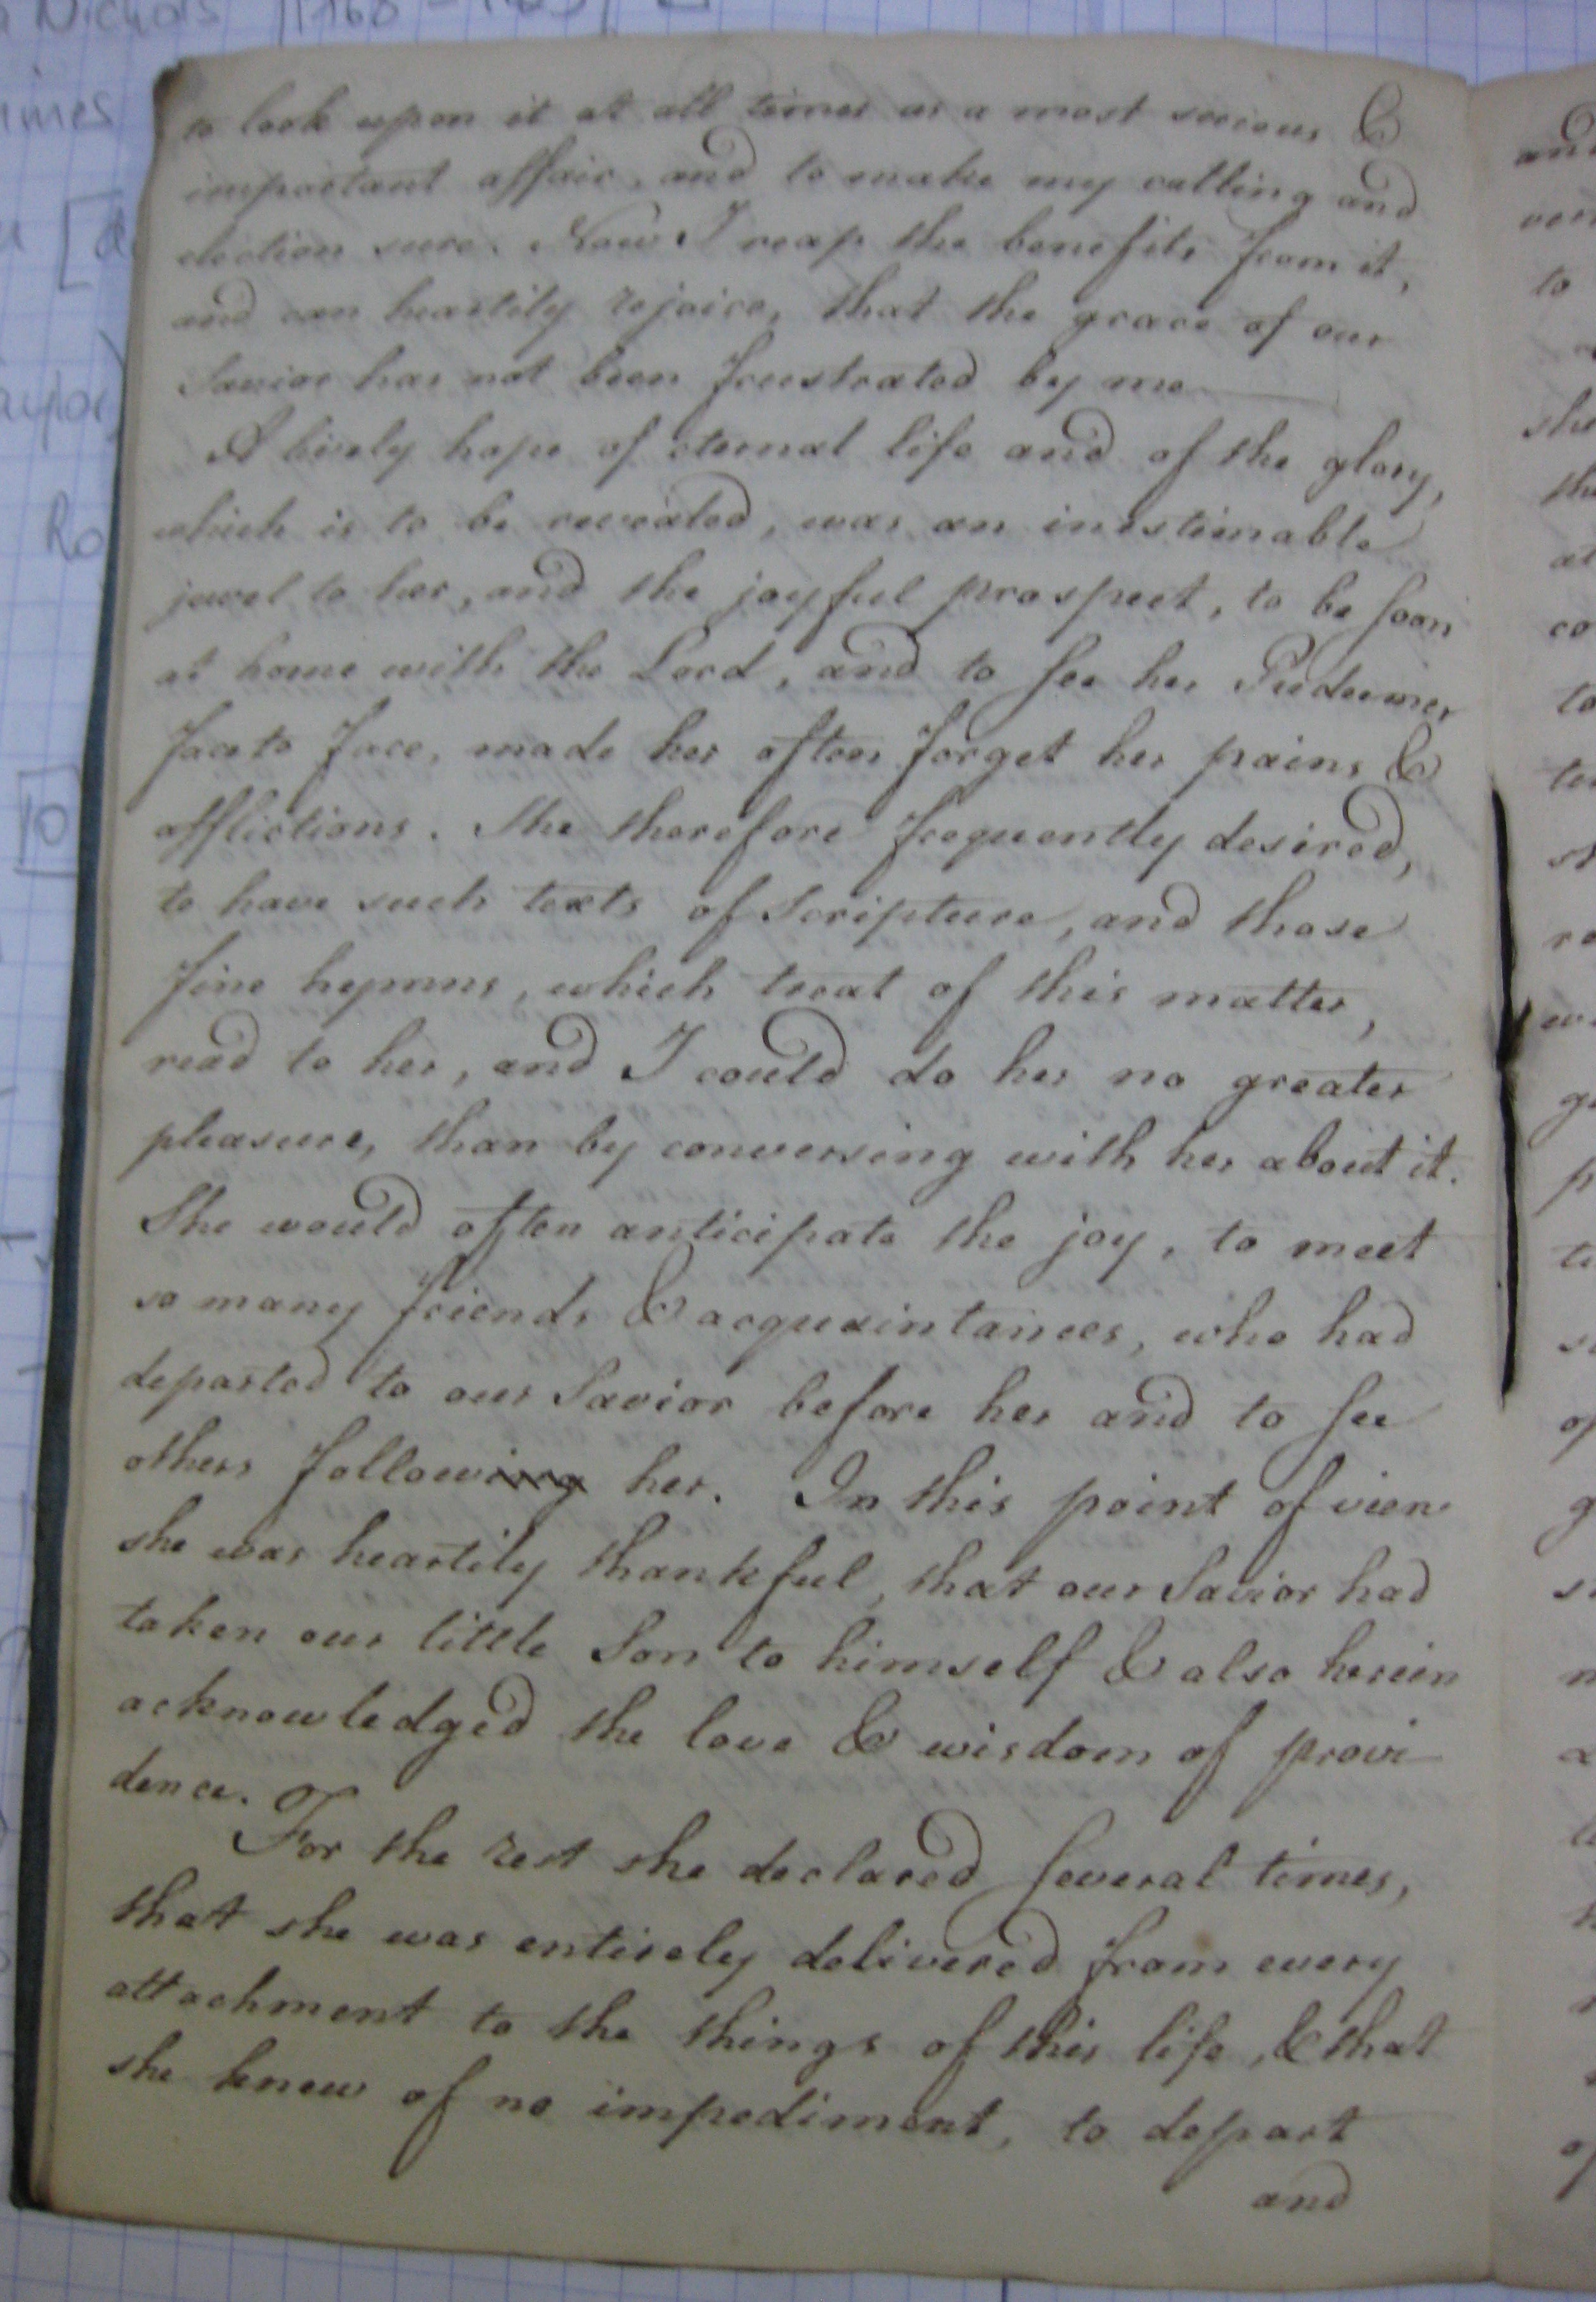 to look upon it at all times as a most serious &
important affair, and to make my calling and
election sure. Now I reap the benefits from it,
and can heartily rejoice, that the grace of our
Savior has not been frustrated by me
A lively hope of eternal life and of the glory,
which is to be revealed, was an inestimable
jewel to her, and the joyful prospect, to be soon
at home with the Lord, and to see her Redeemer
face to face, made her often forget her pains &
afflictions. She therefore frequently desired,
to have such texts of Scripture, and those
fine hymns, which treat of this matter,
read to her, and I could do her no greater
pleasure, than by conversing with her about it.
She would often anticipate the joy, to meet
so many friends & acquaintances, who had
departed to our Savior before her and to see
others following her. In this point of view
she was heartily thankful, that our Savior had
taken our little Son to himself & also herein
acknowledged the love & wisdom of provi
dence.
For the rest she declared several times,
that she was entirely delivered from every
attachment to the things of this life, & that
she knew of no impediment, to depart
and